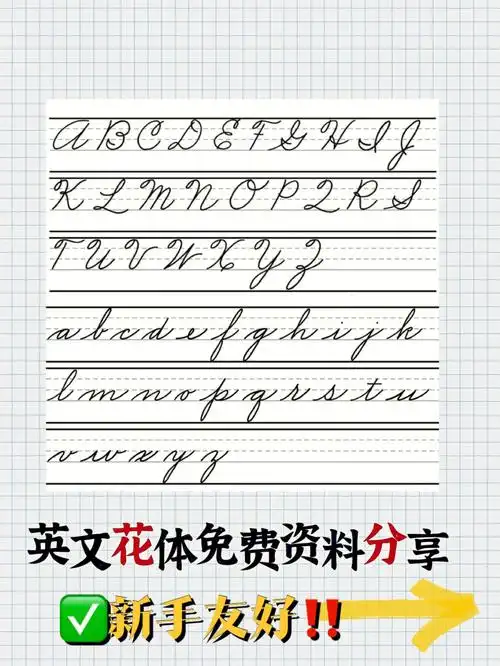 A B C D E F G H I J
K L M N O P Q R S
T U V W X Y Z
a b c d e f g h i j k
l m n o p q r s t u
v w x y z
英文花体免费资料分享
✅新手友好‼️